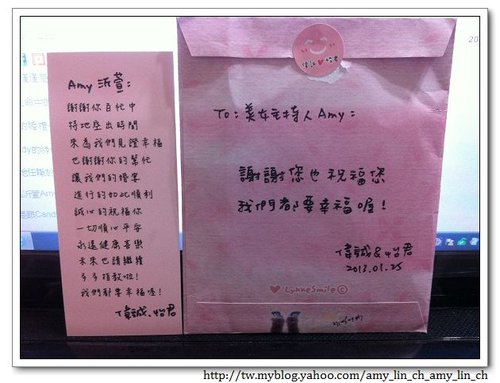 Amy 沂萱:
謝謝你百忙中
特地空出時間
來為我們見證幸福
也謝謝你的幫忙
讓我們的婚宴
進行的如此順利
誠心的祝福你
一切順心平安
永遠健康喜樂
未來也請繼續
多多指教啦!
我們都要幸福喔!
偉誠、怡君
To: 美女主持人 Amy:
謝謝您也祝福您
我們都要幸福喔!
偉誠 & 怡君
2013.01.25
LynneSmile©
http://tw.myblog.yahoo.com/amy_lin_ch_amy_lin_ch